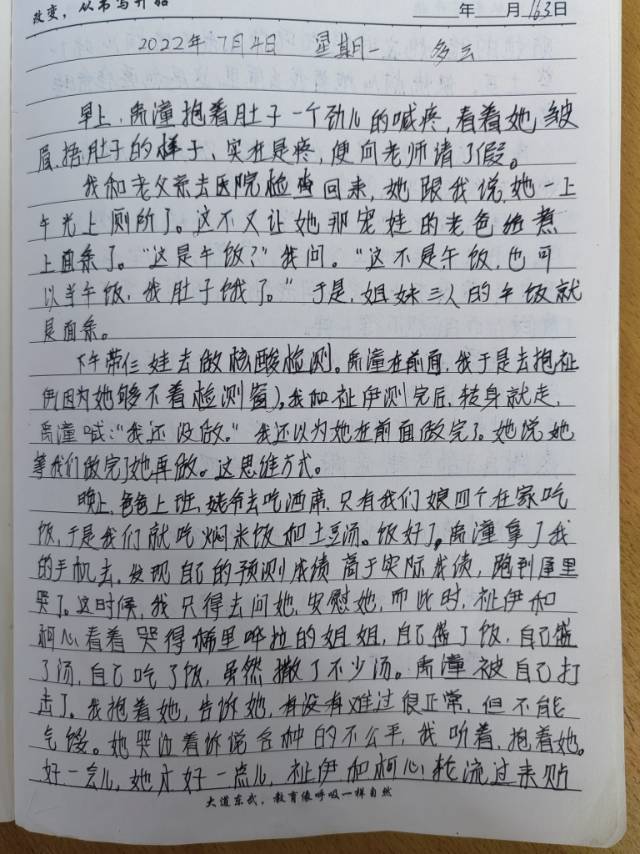 改变，从书写开始
年 月 163日
2022年7月4日 星期一 多云
早上，禹潼抱着肚子一个劲儿的喊疼，看着她皱
眉、捂肚子的样子、实在是疼，便向老师请了假。
我和老父亲去医院检查回来，她跟我说，她一上
午光上厕所了。这不又让她那宠娃的老爸给煮
上面条了。“这是午饭？”我问。“这不是午饭，也可
以当午饭，我肚子饿了。”于是，姐妹三人的午饭就
是面条。
下午带仨娃去做核酸检测。禹潼在前面，我于是去抱祉
伊(因为她够不着检测窗)。我和祉伊测完后，转身就走，
禹潼喊：“我还没做。”我还以为她在前面做完了。她说她
等我们做完了她再做。这思维方式。
晚上，爸爸上班，姥爷去吃酒席，只有我们娘四个在家吃
饭，于是我们就吃焖米饭和土豆汤。饭好了，禹潼拿了我
的手机去，发现自己的预测成绩高于实际成绩，跑到屋里
哭了。这时候，我只得去问她，安慰她，而此时，祉伊和
柯心看着哭得稀里哗拉的姐姐，自己盛了饭，自己盛
了汤，自己吃了饭，虽然撒了不少汤。禹潼被自己打
击了。我抱着她，告诉她，有没有难过很正常，但不能
气馁。她哭泣着诉说各种的不公平，我听着，抱着她。
好一会儿，她才好一点儿，祉伊和柯心轮流过来贴
大道东武，教育像呼吸一样自然